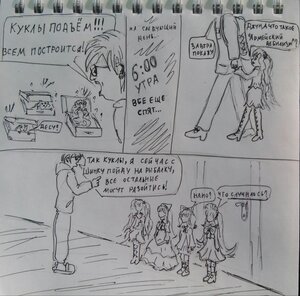 КУКЛЫ ПОДЪЁМ!!!
ВСЕМ ПОСТРОИТСЯ!
ДЕСУ!
НА СЛЕДУЮЩИЙ
ДЕНЬ.
6:00
УТРА
ВСЕ ЕЩЕ
СПЯТ...
ДЖУН, А ЧТО ТАКОЕ
"АРМЕЙСКИЙ
ДЕБИЛИЗМ"?
ЗАВТРА
ПОКАЖУ
ТАК КУКЛЫ, Я СЕЙЧАС С
ШИНКУ ПОЙДУ НА РЫБАЛКУ,
ВСЕ ОСТАЛЬНЫЕ
МОГУТ РАЗОЙТИСЬ!
НАНО?
ЧТО СЛУЧИЛОСЬ?